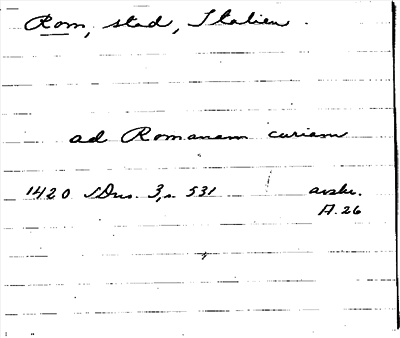 Rom, stad, Italien.
ad Romanam curiam
1420 SDns. 3, s. 531 avskr.
A. 26